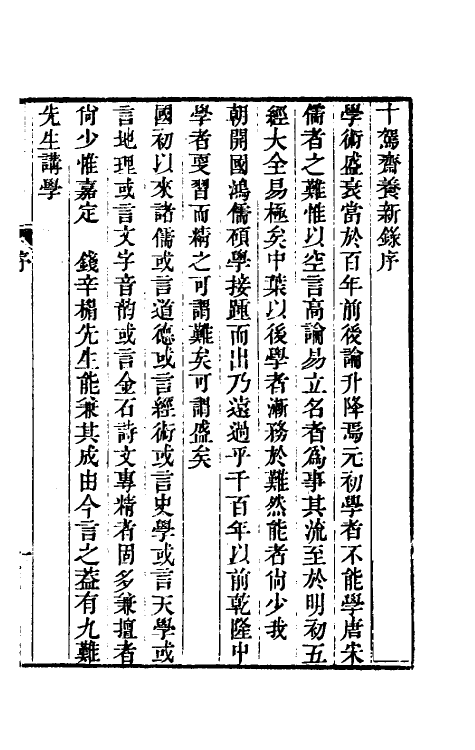 十駕齋養新錄序
學術盛衰當於百年前後論升降焉元初學者不能學唐宋
儒者之難惟以空言高論易立名者爲事其流至於明初五
經大全易極矣中葉以後學者漸務於難然能者尙少我
朝開國鴻儒碩學接踵而出乃遠過乎千百年以前乾隆中
學者更習而精之可謂難矣可謂盛矣
國初以來諸儒或言道德或言經術或言史學或言天學或
言地理或言文字音韵或言金石詩文專精者固多兼擅者
尙少惟嘉定　錢辛楣先生能兼其成由今言之葢有九難
先生講學
序
一